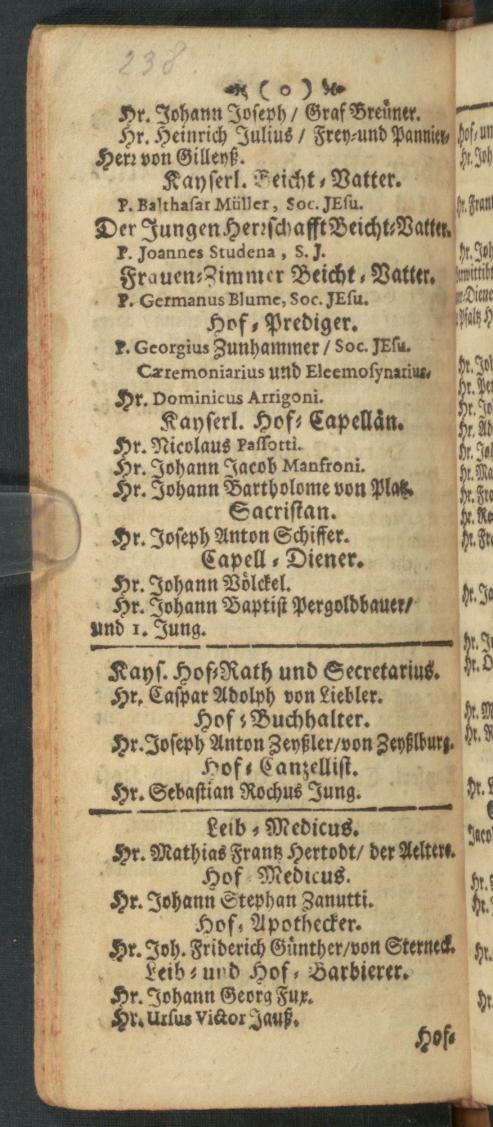 238.
( o )
Hr. Johann Joseph / Graf Breüner.
Hr. Heinrich Julius / Frey-und Pannier-
Herr von Gilleyß.
Kayserl. Beicht-Vatter.
P. Balthasar Müller, Soc. JEsu.
Der Jungen Herrschafft Beicht-Vatter.
P. Joannes Studena, S. J.
Frauen-Zimmer Beicht-Vatter.
P. Germanus Blume, Soc. JEsu.
Hof-Prediger.
P. Georgius Zunhammer / Soc. JEsu.
Cæremoniarius und Eleemosynarius.
Hr. Dominicus Arrigoni.
Kayserl. Hof-Capellän.
Hr. Nicolaus Passotti.
Hr. Johann Jacob Manfroni.
Hr. Johann Bartholome von Platz.
Sacristan.
Hr. Joseph Anton Schiffer.
Capell-Diener.
Hr. Johann Völckel.
Hr. Johann Baptist Pergoldbauer/
und 1. Jung.
Kays. Hof-Rath und Secretarius.
Hr. Caspar Adolph von Liebler.
Hof-Buchhalter.
Hr. Joseph Anton Zeyßler/von Zeyßlburg.
Hof-Canzellist.
Hr. Sebastian Rochus Jung.
Leib-Medicus.
Hr. Mathias Frantz Hertodt/ der Aeltere.
Hof-Medicus.
Hr. Johann Stephan Zanutti.
Hof-Apothecker.
Hr. Joh. Friderich Günther/von Sterneck.
Leib-und Hof-Barbierer.
Hr. Johann Georg Fux.
Hr. Ursus Victor Jauß.
Hof-